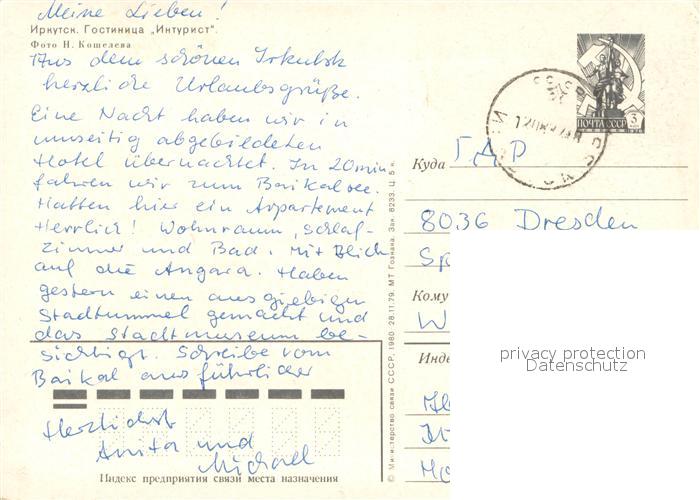 Meine Lieben!
Иркутск. Гостиница „Интурист".
Фото Н. Кошелева
Aus dem schönen Irkutsk
herzliche Urlaubsgrüße.
Eine Nacht haben wir in
umseitig abgebildeten
Hotel übernachtet. In 20 min
fahren wir zum Baikalsee.
Hatten hier ein Appartement
Herrlich! Wohnraum, Schlaf-
zimmer und Bad. Mit Blick
auf die Angara. Haben
gestern einen ausgiebigen
Stadtbummel gemacht und
das Stadtmuseum be-
sichtigt. Schreibe vom
Baikal ausführlicher
Herzlichst
Anita und
Michael
Индекс предприятия связи места назначения
© Министерство связи СССР, 1980. 28.11.79. МТ Гознака. Зак. 8233. Ц. 5 к.
ПОЧТА СССР 3
Куда ГДР
8036 Dresden
Sp
Кому
W
Инде
privacy protection
Datenschutz